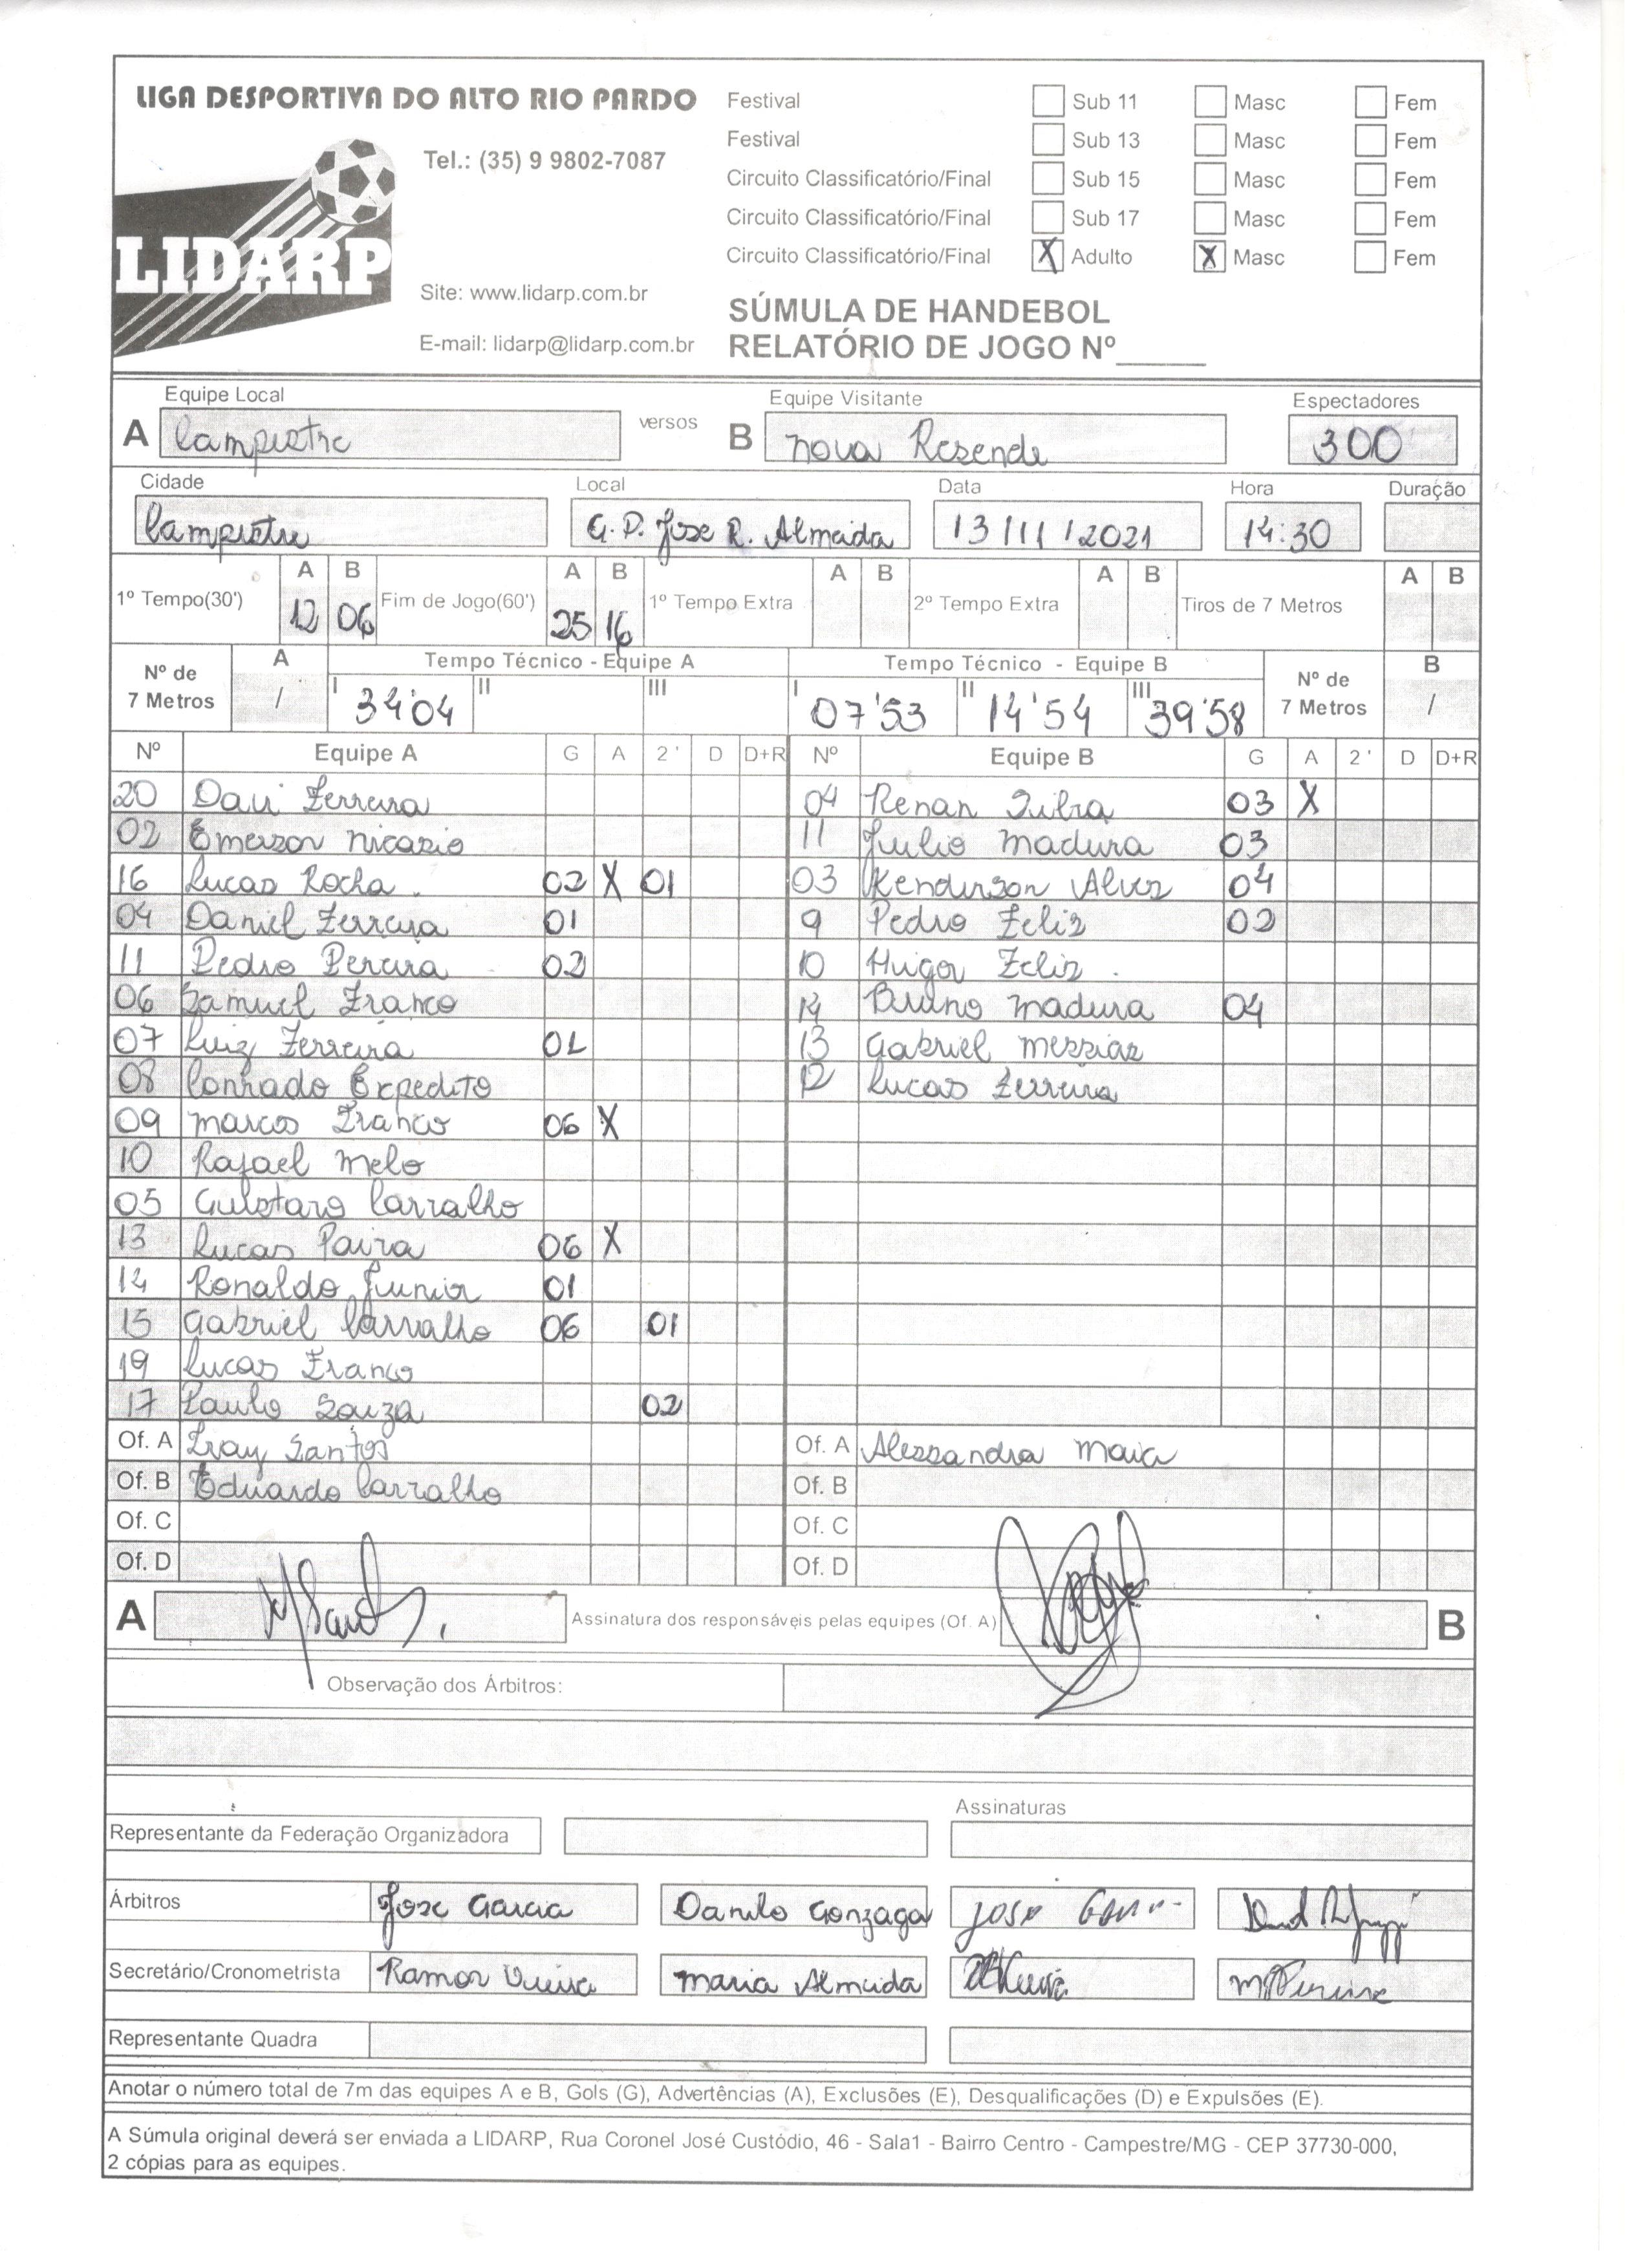 LIGA DESPORTIVA DO ALTO RIO PARDO
Tel.: (35) 9 9802-7087
LIDARP
Site: www.lidarp.com.br
E-mail: lidarp@lidarp.com.br
Festival Sub 11 Masc Fem
Festival Sub 13 Masc Fem
Circuito Classificatório/Final Sub 15 Masc Fem
Circuito Classificatório/Final Sub 17 Masc Fem
Circuito Classificatório/Final X Adulto X Masc Fem
SÚMULA DE HANDEBOL
RELATÓRIO DE JOGO Nº_____
Equipe Local Equipe Visitante Espectadores
A Campestre versos B Nova Resende 300
Cidade Local Data Hora Duração
Campestre G.P. Jose R. Almeida 13/11/2021 14:30
A B A B A B A B A B
1º Tempo(30') 12 06 Fim de Jogo(60') 25 16 1º Tempo Extra 2º Tempo Extra Tiros de 7 Metros
Nº de 7 Metros A / Tempo Técnico - Equipe A I 34'04 II III Tempo Técnico - Equipe B I 07'53 II 14'54 III 39'58 Nº de 7 Metros B /
Nº Equipe A G A 2' D D+R Nº Equipe B G A 2' D D+R
20 Davi Ferreira 04 Renan Silva 03 X
02 Emerson Nicasio 11 Julio Madura 03
16 Lucas Rocha 02 X 01 03 Kenderson Alves 04
04 Daniel Ferreira 01 9 Pedro Feliz 02
11 Pedro Pereira 02 10 Higor Feliz
06 Samuel Franco 14 Bruno Madura 04
07 Luiz Ferreira 01 13 Gabriel Messias
08 Conrado Expedito 12 Lucas Ferreira
09 Marcos Franco 06 X
10 Rafael Melo
05 Gustavo Carvalho
13 Lucas Paiva 06 X
14 Ronaldo Junior 01
15 Gabriel Carvalho 06 01
19 Lucas Franco
17 Paulo Souza 02
Of. A Santos Of. A Alessandra Maia
Of. B Eduardo Carvalho Of. B
Of. C Of. C
Of. D Of. D
A Assinatura dos responsáveis pelas equipes (Of. A) B
Observação dos Árbitros:
Assinaturas
Representante da Federação Organizadora
Árbitros Jose Garcia Danilo Gonzaga
Secretário/Cronometrista Ramon Vieira Maria Almeida
Representante Quadra
Anotar o número total de 7m das equipes A e B, Gols (G), Advertências (A), Exclusões (E), Desqualificações (D) e Expulsões (E).
A Súmula original deverá ser enviada a LIDARP, Rua Coronel José Custódio, 46 - Sala1 - Bairro Centro - Campestre/MG - CEP 37730-000,
2 cópias para as equipes.